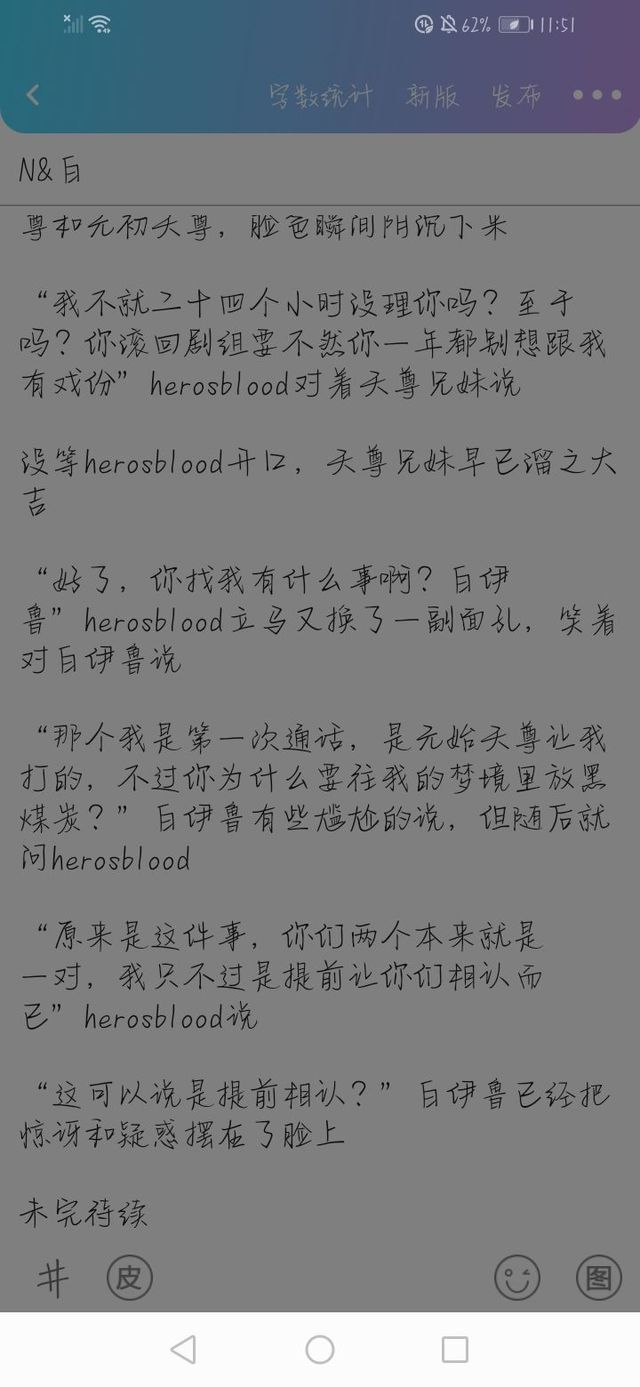 62% 11:51
字数统计 新版 发布
N&白
尊和元初天尊，脸色瞬间阴沉下来
“我不就二十四个小时没理你吗？至于
吗？你滚回剧组要不然你一年都别想跟我
有戏份”herosblood对着天尊兄妹说
没等herosblood开口，天尊兄妹早已溜之大
吉
“好了，你找我有什么事啊？白伊
鲁”herosblood立马又换了一副面孔，笑着
对白伊鲁说
“那个我是第一次通话，是元始天尊让我
打的，不过你为什么要往我的梦境里放黑
煤炭？”白伊鲁有些尴尬的说，但随后就
问herosblood
“原来是这件事，你们两个本来就是
一对，我只不过是提前让你们相认而
已”herosblood说
“这可以说是提前相认？”白伊鲁已经把
惊讶和疑惑摆在了脸上
未完待续
井 皮 图